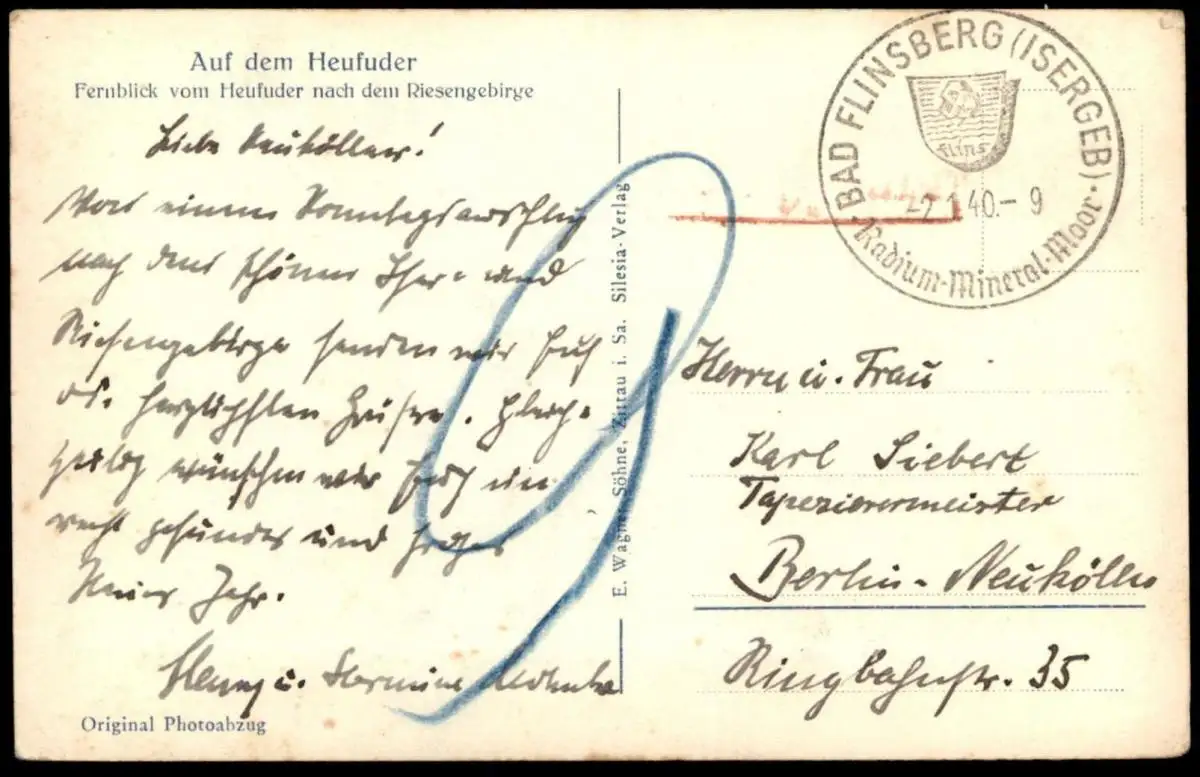 Auf dem Heufuder
Fernblick vom Heufuder nach dem Riesengebirge
Liebe Neuköllner!
Von einem Sonntagsausflug
nach dem schönen Iser- und
Riesengebirge senden wir Euch
die herzlichsten Grüße. Gleich-
zeitig wünschen wir Euch ein
recht gesundes und frohes
Neues Jahr.
u. Hermine
Original Photoabzug
E. Wagner Söhne, Zittau i. Sa. Silesia-Verlag
BAD FLINSBERG (ISERGEB)
flins
1 40.- 9
Radium-Mineral-Moor
Herrn u. Frau
Karl Siebert
Tapezierermeister
Berlin-Neukölln
Ringbahnstr. 35
9